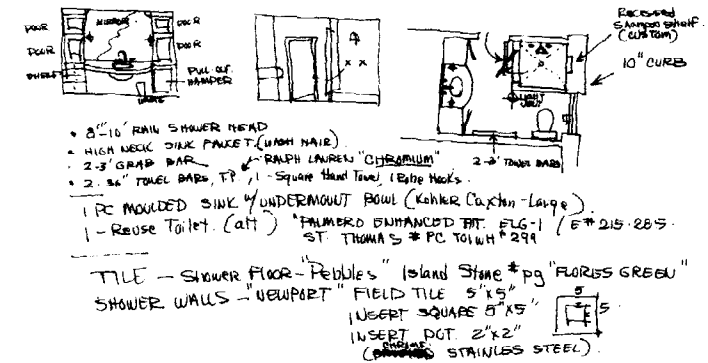 DOOR
MIRROR
DOOR
DOOR
DOOR
SHELF
PULL OUT
HAMPER
RECESSED
SHAMPOO SHELF
(CUSTOM)
10" CURB
LIGHT
VENT
2-3' TOWEL BARS
• 8"-10" RAIN SHOWER HEAD
• HIGH NECK SINK FAUCET (WASH HAIR)
• 2-3' GRAB BAR
RALPH LAUREN "CHROMIUM"
• 2. 36" TOWEL BARS, T.P., 1-Square Hand Towel, 1 Robe Hooks.
1 PC MOULDED SINK W/ UNDERMOUNT BOWL (Kohler Caxton-Large)
1-Reuse Toilet. (att) "PALMERO ENHANCED FIT. ELG-1 (E# 215.285.
ST. THOMAS # PC TOIWH # 299
TILE - SHOWER FLOOR - "Pebbles" Island Stone # pg "FLORES GREEN"
SHOWER WALLS - "NEWPORT" FIELD TILE 5"x5"
INSERT SQUARE 5"x5"
INSERT DOT. 2"x2"
(CHROME STAINLESS STEEL).
5
2
5